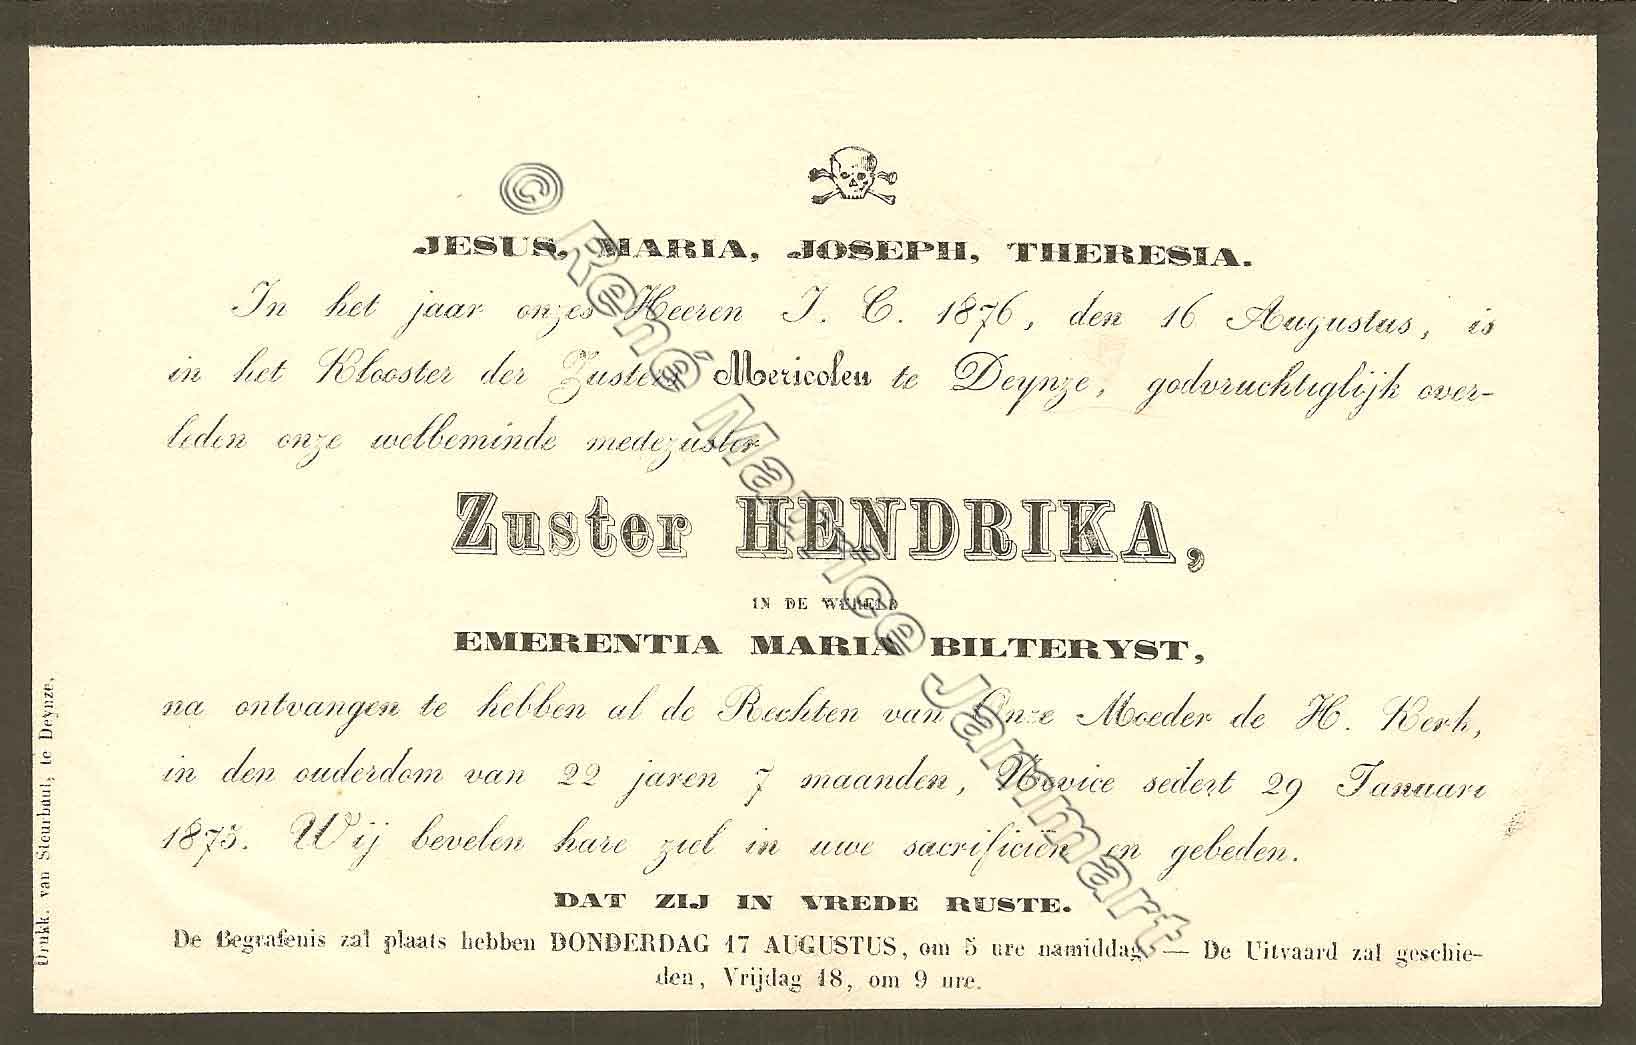 JESUS, MARIA, JOSEPH, THERESIA.
In het jaar onzes Heeren J. C. 1876, den 16 Augustus, is
in het Klooster der Zusters Mericolen te Deynze, godvruchtiglijk over-
leden onze welbeminde medezuster
Zuster HENDRIKA,
IN DE WERELD
EMERENTIA MARIA BILTERYST,
na ontvangen te hebben al de Rechten van Onze Moeder de H. Kerk,
in den ouderdom van 22 jaren 7 maanden, Novice sedert 29 Januari
1875. Wij bevelen hare ziel in uwe sacrificiën en gebeden.
DAT ZIJ IN VREDE RUSTE.
De Begrafenis zal plaats hebben DONDERDAG 17 AUGUSTUS, om 5 ure namiddag. — De Uitvaard zal geschie-
den, Vrijdag 18, om 9 ure.
Drukk. van Steurbaut, te Deynze.
© René Maurice Janmart